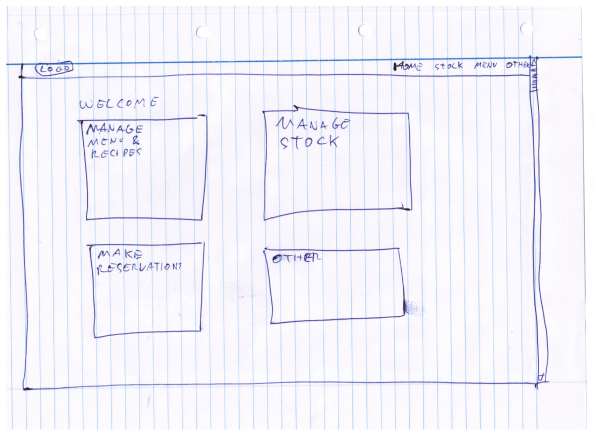 LOGO
HOME STOCK MENU OTHER
WELCOME
MANAGE
MENU &
RECIPES
MANAGE
STOCK
MAKE
RESERVATION
OTHER